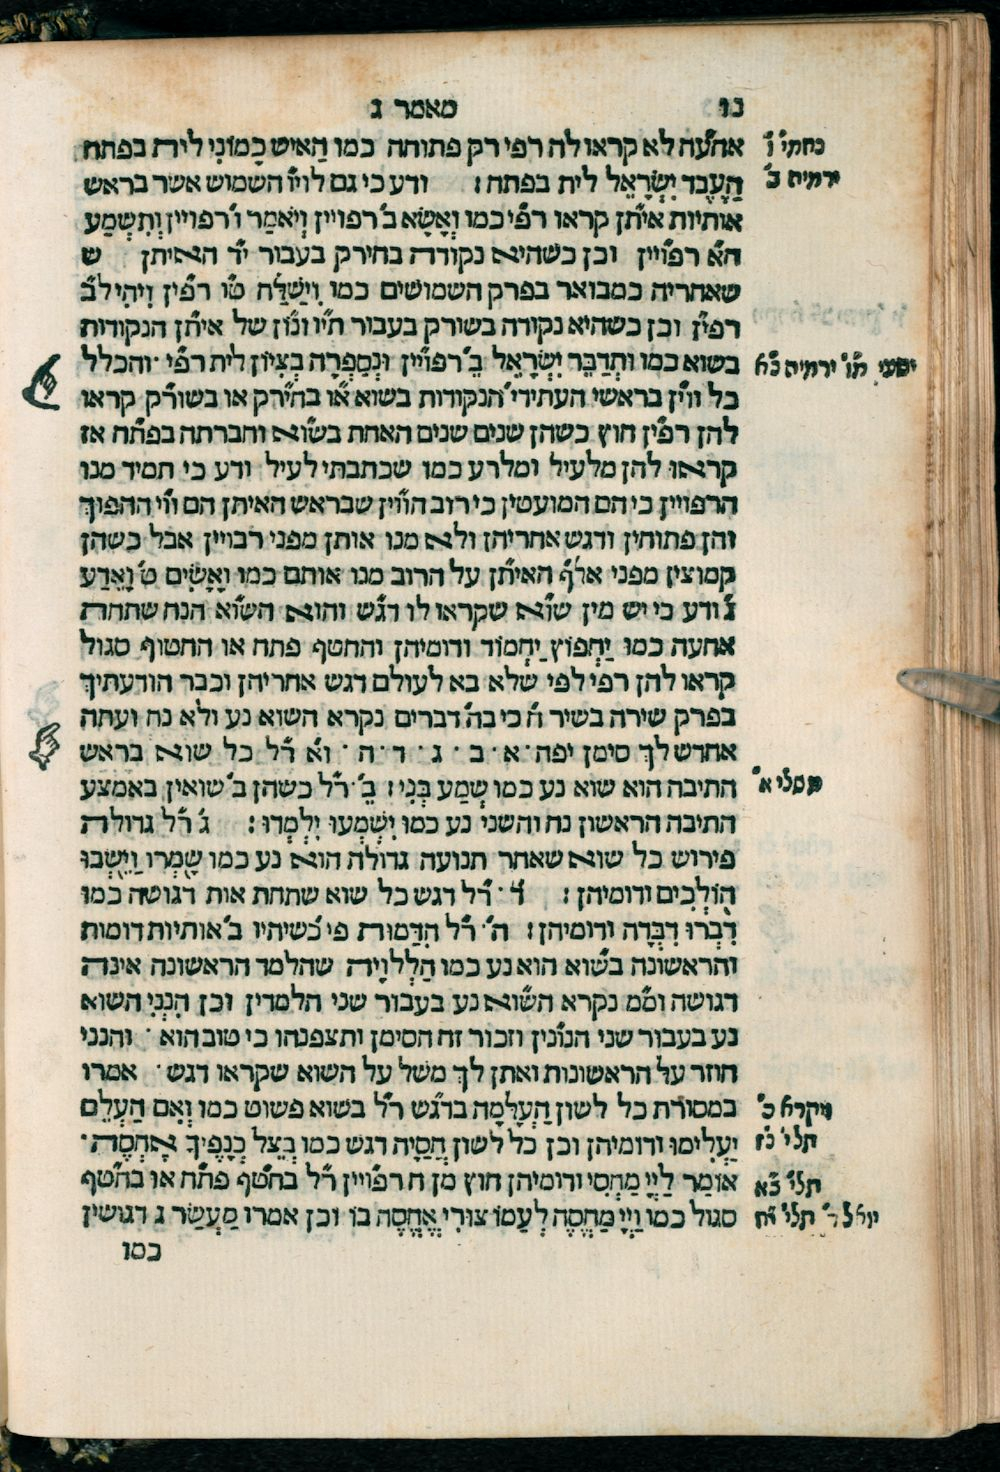 נו
מאמר ג
אחע״ה לא קראו לה רפי רק פתוחה כמו הַאיש כָּמוֹנִי לית בפתח
נחמי׳ ו׳
הַעֶבֶד יִשְׂרָאֵל לית בפתח : ודע כי גם לוי״ו השמוש אשר בראש
ירמיה ב׳
אותיות אית״ן קראו רפ״י כמו וְאֶשָּׂא ב׳ רפויין וְיֹאמַר ו׳ רפויין וְתִשְׁמַע
ה״א רפויין וכן כשהיא נקודה בחירק בעבור י״ד האיתן ש
שאחריה כמבואר בפרק השמושים כמו וִישַׁלַּח ט״ו רפ״ין וִיהִי ל״ב
רפי״ן וכן כשהיא נקודה בשורק בעבור תי״ו ונו״ן של אית״ן הנקודות
בשוא כמו וּתְדַבֵּר יִשְׂרָאֵל ב׳ רפויין וּנְסַפְּרָה בְצִיּוֹן לית רפ״י · והכלל
ישעי׳ מ״ו ירמיה נ״א
כל ווי״ן בראשי העתידי׳ הנקודות בשוא א״ו בחיר״ק או בשור״ק קראו
להן רפ״ין חוץ כשהן שנים שנים האחת בשוא וחברתה בפתח אז
קראו להן מלעיל ומלרע כמו שכתבתי לעיל ודע כי תמיד מנו
הרפויין כי הם המועטין כי רוב הווי״ן שבראש האיתן הם ווי ההפוך
והן פתוחין ודגש אחריהן ולא מנו אותן מפני רבויין אבל כשהן
קמוצין מפני אל״ף האית״ן על הרוב מנו אותם כמו וָאָשִׂים ט׳ וָאֵדַע
ג׳ ודע כי יש מין שוא שקראו לו דגש והוא השוא הנח שתחת
אחעה כמו יַחְפּוֹץ יַחְמוֹד ודומיהן והחטף פתח או החטוף סגול
קראו להן רפי לפי שלא בא לעולם דגש אחריהן וכבר הודעתיך
בפרק שירה בשיר ח׳ כי בה׳ דברים נקרא השוא נע ולא נח ועתה
אחדש לך סימן יפה · א · ב · ג · ד · ה · וא ר״ל כל שוא בראש
התיבה הוא שוא נע כמו שְׁמַע בְּנִי : ב׳ ר״ל כשהן ב׳ שואין באמצע
משלי א׳
התיבה הראשון נח והשני נע כמו יִשְׁמְעוּ יִלְמְדוּ : ג׳ ר״ל גדולה
פירוש כל שוא שאחר תנועה גדולה הוא נע כמו שָׁמְרוּ וַיֵּשְׁבוּ
הוֹלְכִים ודומיהן : ד׳ · ר״ל דגש כל שוא שתחת אות דגושה כמו
דִּבְּרוּ דִּבְּרָה ודומיהן : ה׳ · ר״ל הִדַּמּוּת פי׳ כשיהיו ב׳ אותיות דומות
והראשונה בשוא הוא נע כמו הַלְלוּיָהּ שהלמד הראשונה אינה
דגושה ומ״מ נקרא השוא נע בעבור שני הלמדין וכן הִנְנִי השוא
נע בעבור שני הנונין וזכור זה הסימן ותצפנהו כי טוב הוא · והנני
חוזר על הראשונות ואתן לך משל על השוא שקראו דגש · אמרו
במסורת כל לשון הַעְלָמָה בדגש ר״ל בשוא פשוט כמו וְאִם הַעְלֵם
ויקרא כ׳
יַעְלִימוּ ודומיהן וכן כל לשון חֲסָיָה דגש כמו בְּצֵל כְּנָפֶיךָ אֶחְסֶה ·
תלי׳ נ״ז
אוֹמַר לַיְיָ מַחְסִי ודומיהן חוץ מן ח רפויין ר״ל בחטף פתח או בחטף
תלי׳ צ״א
סגול כמו וַיְיָ מַחֲסֶה לְעַמּוֹ צוּרִי אֶחֱסֶה בּוֹ וכן אמרו מַעְשַׂר ג דגושין
יואל ד׳ תלי׳ י״ח
כמו